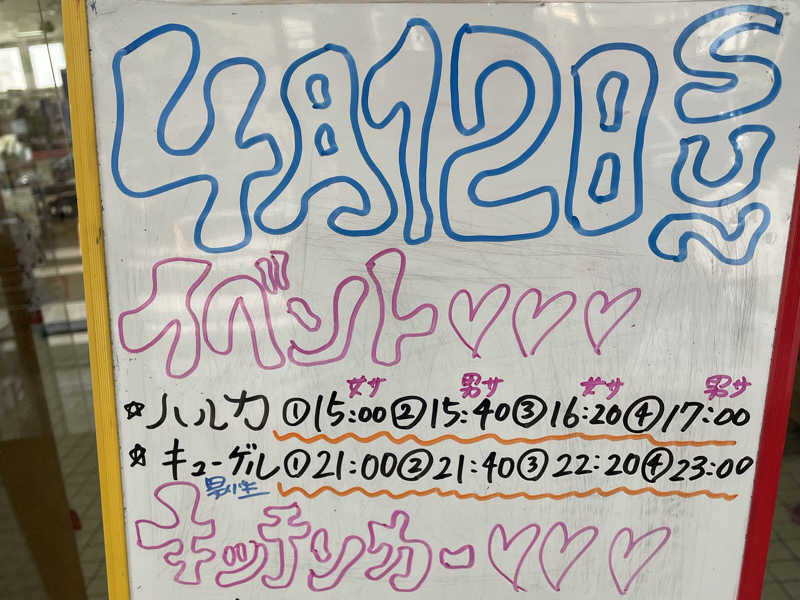 4月12日 sun
イベント♡♡♡
女サ 男サ 女サ 男サ
☆ハルカ ①15:00②15:40③16:20④17:00
☆キューゲル①21:00②21:40③22:20④23:00
キッチンカー♡♡♡